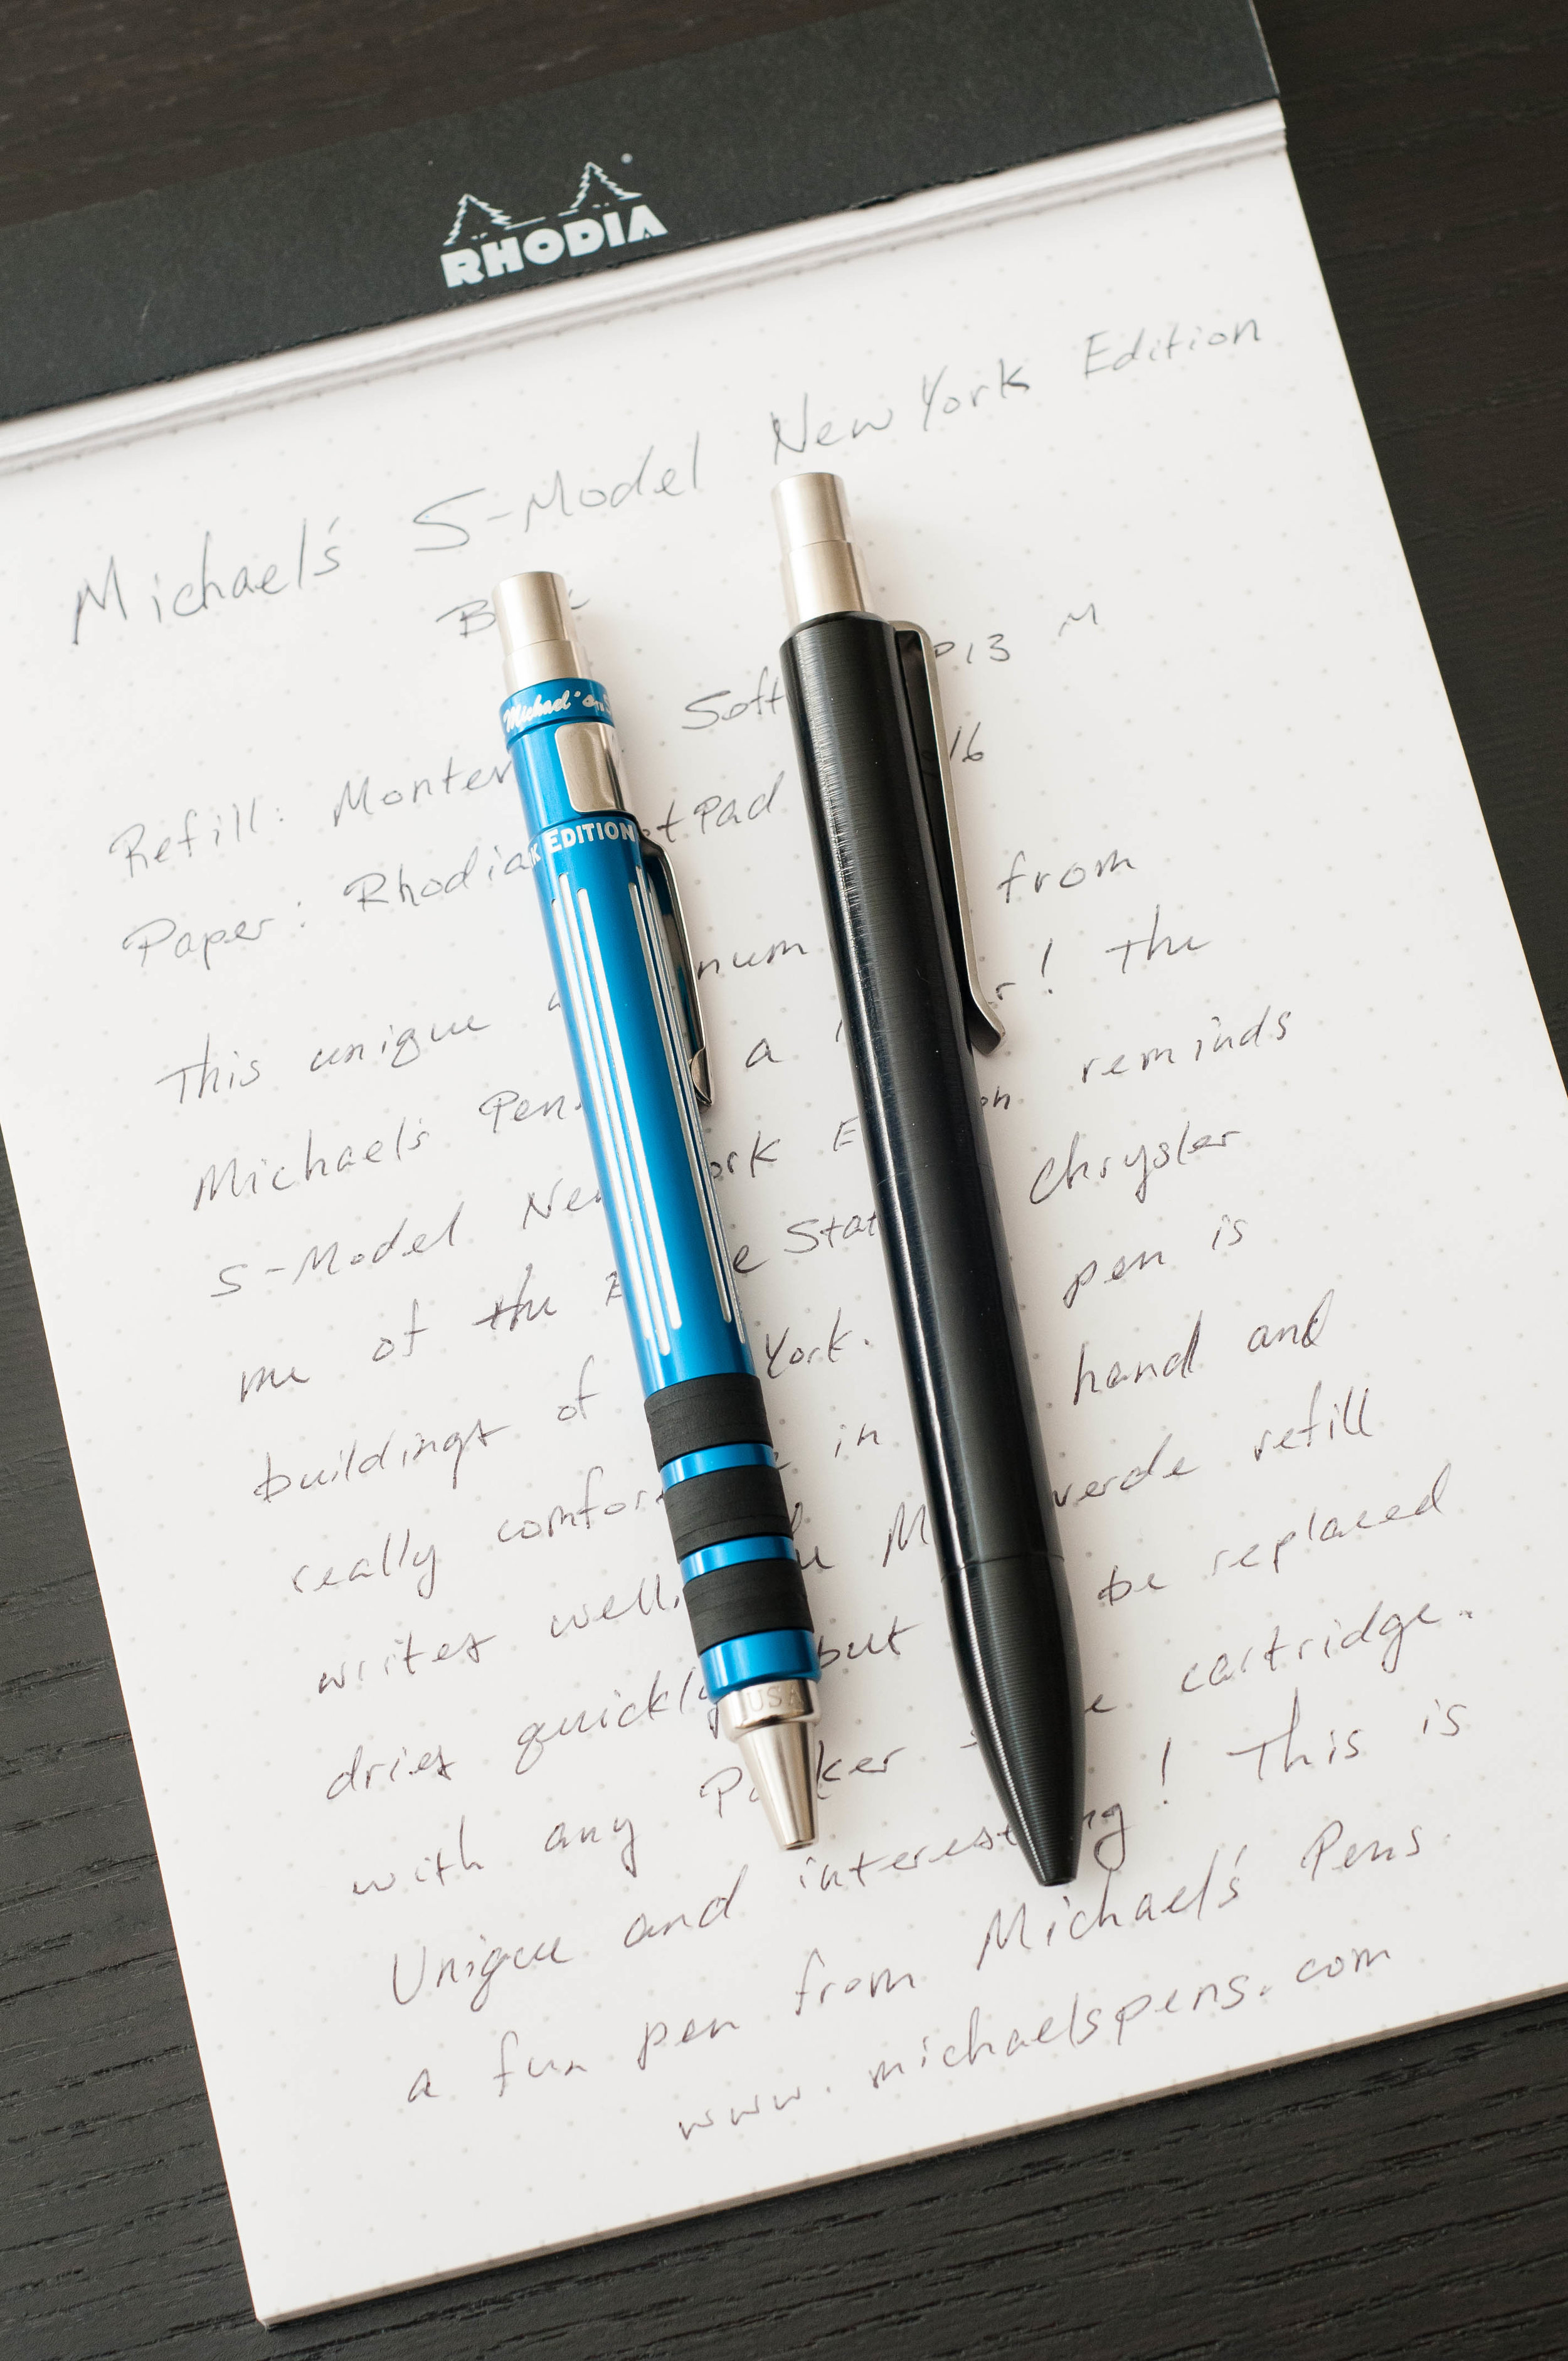 RHODIA
Michael's S-Model New York Edition
Refill: Soft P13 M
Paper: Rhodia Pad 16
This unique from
Michael's a ! The
S-Model reminds
me of the Chrysler
buildings of York. pen is
really in hand and
writes well. refill
dries quickly but be replaced
with any cartridge.
Unique and interesting! This is
a fun pen from Michael's Pens.
www.michaelspens.com
Michael's
EDITION
USA